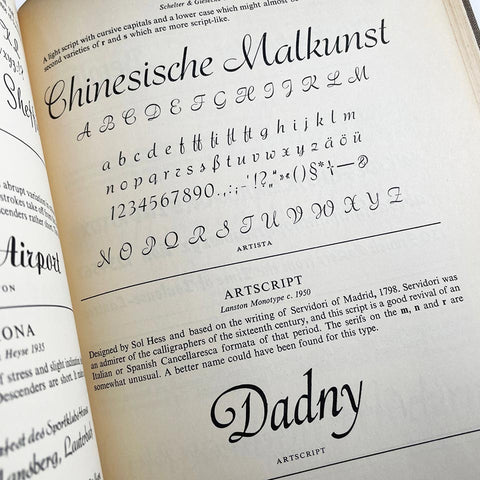 Schelter & Giesecke
A light script with cursive capitals and a lower case which might almost be
second varieties of r and s which are more script-like.
Chinesische Malkunst
A B C D E F G H I J K L M
a b c d e f ff fi fl ft g h i j k l m
n o p q r s s ß t u v w x y z ä ö ü
1234567890.,:;-'!?„“»«()§*†—
N O P Q R S T U V W X Y Z
ARTISTA
ARTSCRIPT
Lanston Monotype c. 1950
Designed by Sol Hess and based on the writing of Servidori of Madrid, 1798. Servidori was
an admirer of the calligraphers of the sixteenth century, and this script is a good revival of an
Italian or Spanish Cancellaresca formata of that period. The serifs on the m, n and r are
somewhat unusual. A better name could have been found for this type.
Dadny
ARTSCRIPT
abrupt variation
strokes take off
descenders rather short
Airport
TON
ONA
Heyse 1935
of stress and slight
Descenders are short.
fest des Sportklubs
Lansberg, Lauterbach